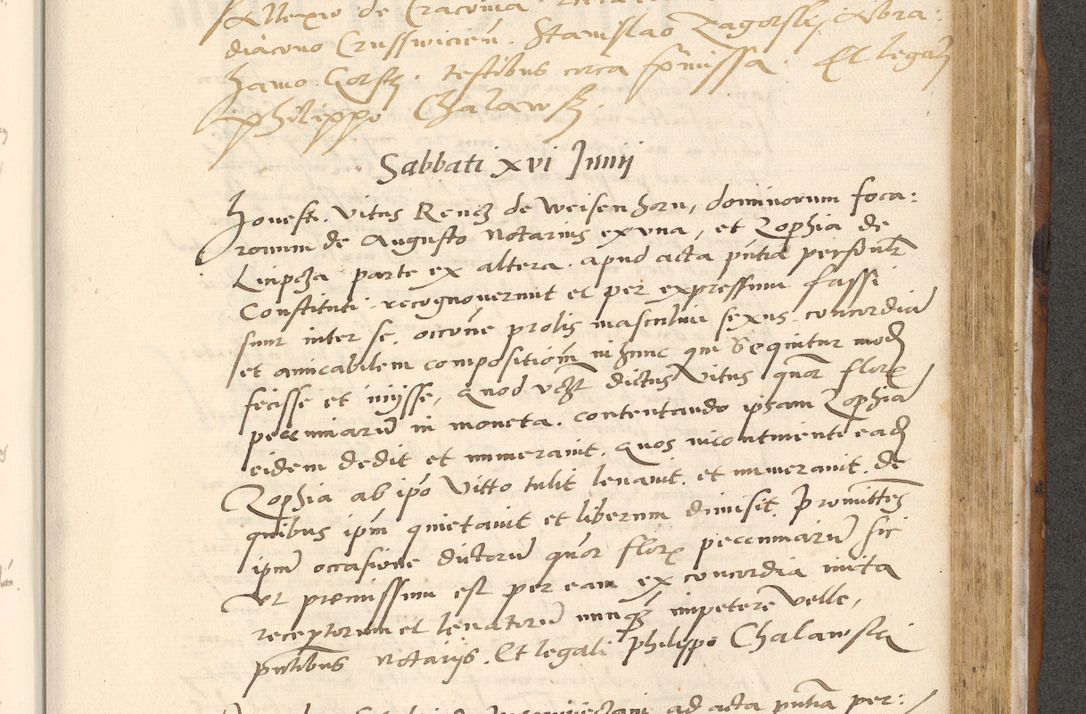 Allexio de Cracovia
diacono Crusswicień. Stanislao Zagorsky Abra:
hamo Gorsky. testibus circa p͂missa. Et legali
philippo Chalawsky.
Sabbati xvi Junij
Honesti. Vitus Rencz de Weisenhorn, dominorum foca:
rorum de Augusto Notarius ex vna, et Zophia de
Lipcza parte ex altera. apud acta p͂ntia personlr
Constituti. recognoverunt et per expressum fassi
sunt inter se. occōne prolis masculini sexus. concordiā
et amicabilem compositiōm in hunc qui Sequitur modū
fecisse et inijsse, quod vʒ dictus Vitus quōr florʒ
pecuniarū in moneta. contentando ipsam Zophiā
eidem dedit et numeravit. quos incontinente eadē
Zophia ab ipō Vitto tulit levavit. et numeravit. de
quibus ipm quietavit et liberum dimisit. Promittēs
ipm occasione dictorū quōr florʒ pecuniarū, sic
vt premissum est per eam ex concordia inita
receptorum et levatorū nunqȝ impetere velle,
p͂ntibus notarijs. Et legali philippo Chalawski
ad acta p͂ntia per: